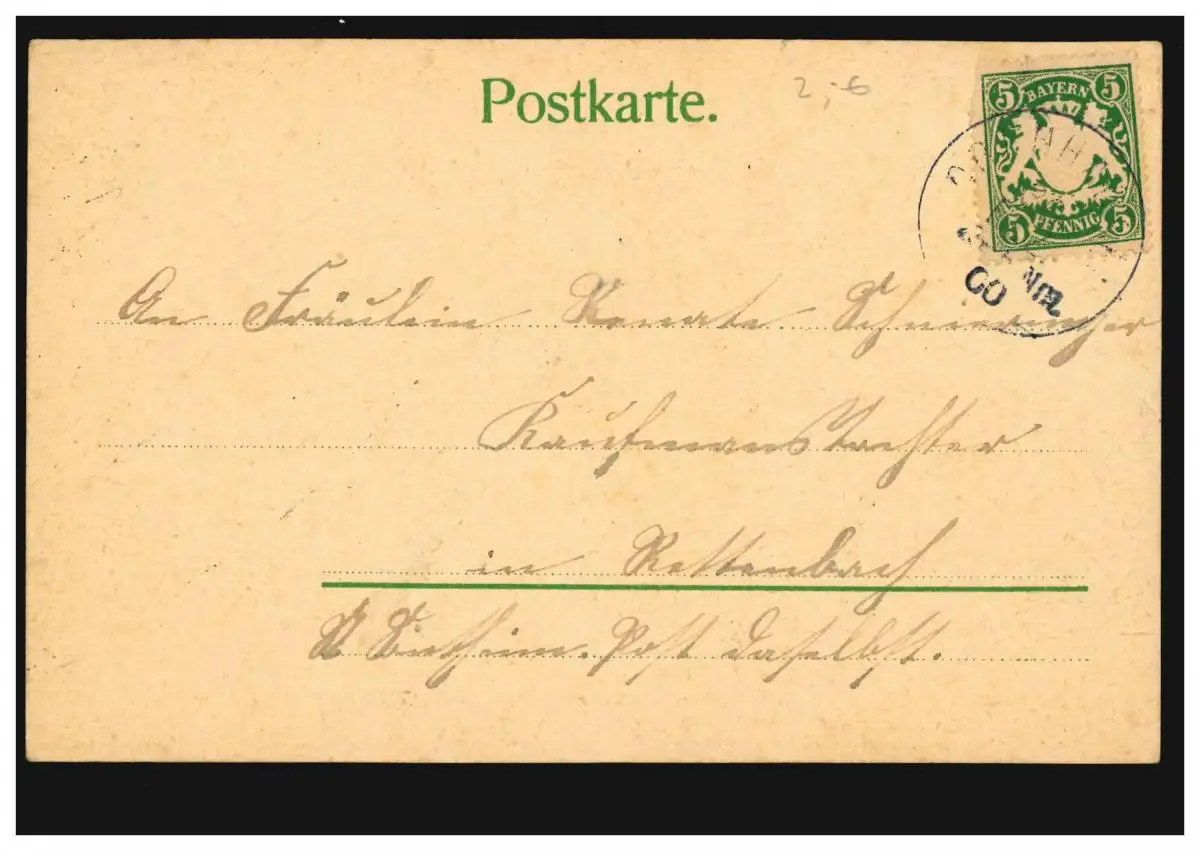 Postkarte.
2,-6
5 BAYERN 5
5 PFENNIG 5
Nm
00
An Fräulein Renate
Kaufmanstochter
in Rettenbach
Post daselbst.